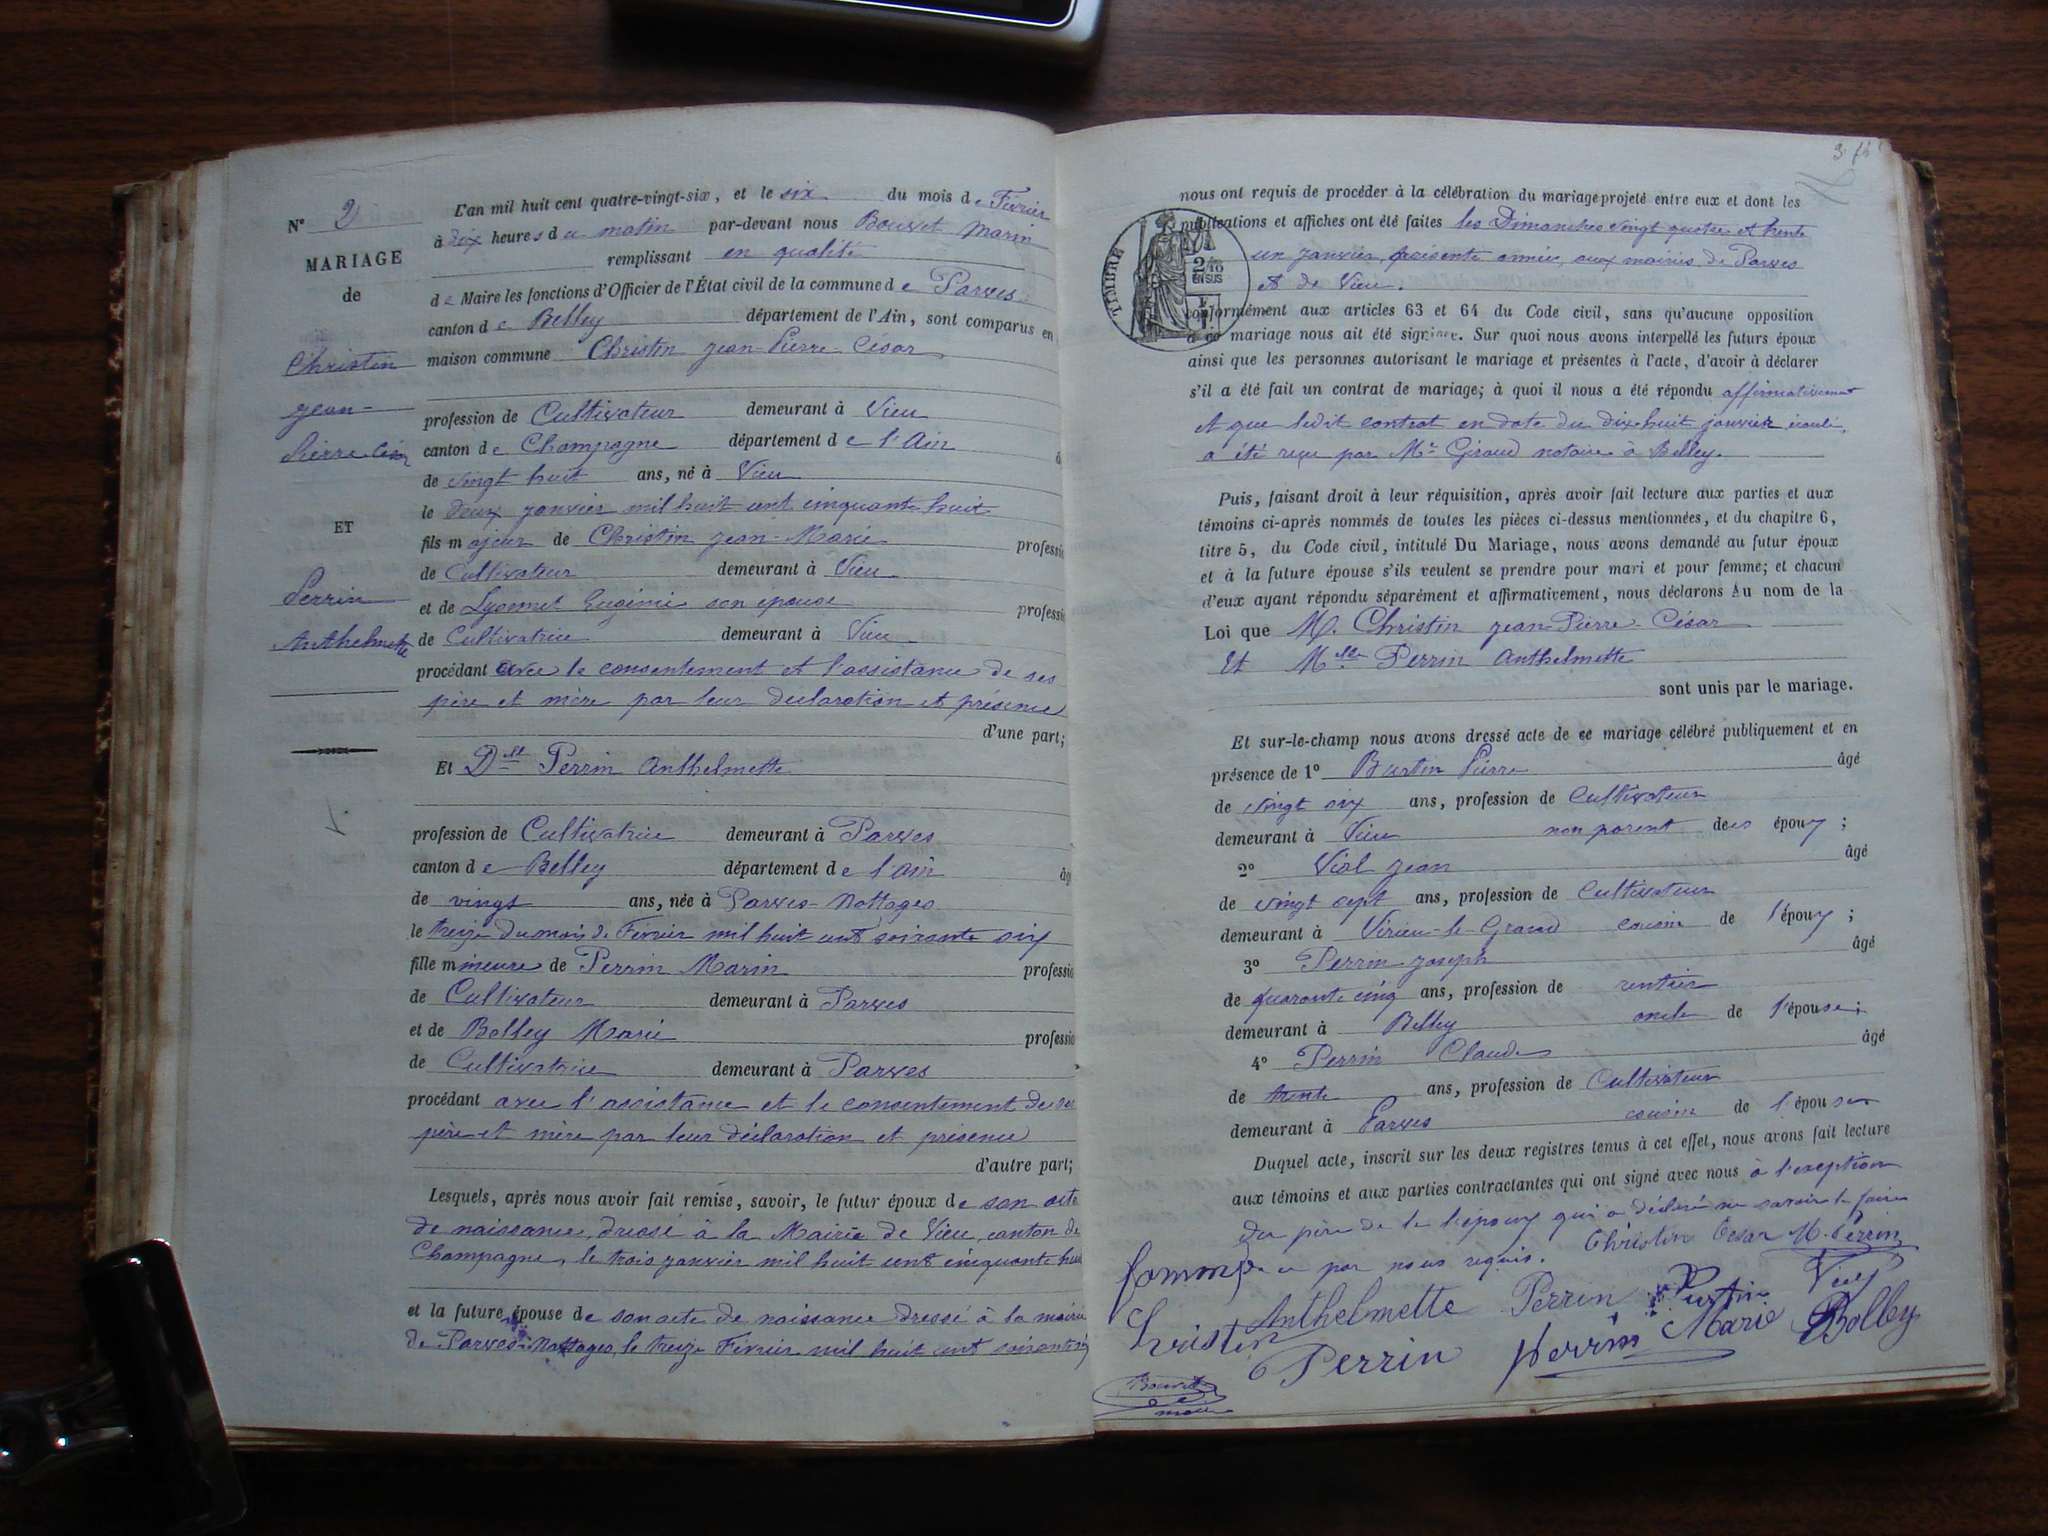 N° 2
MARIAGE
de
Christin
Jean-
Pierre César
ET
Perrin
Anthelmette
L'an mil huit cent quatre-vingt-six, et le six du mois de Février
à dix heures du matin par-devant nous Bouvet Marin
remplissant en qualité
de Maire les fonctions d'Officier de l'État civil de la commune de Parves
canton de Belley département de l'Ain, sont comparus en
maison commune Christin Jean-Pierre César
profession de Cultivateur demeurant à Vieu
canton de Champagne département de l'Ain â
de vingt huit ans, né à Vieu
le deux janvier mil huit cent cinquante huit
fils majeur de Christin Jean-Marie professio
de Cultivateur demeurant à Vieu
et de Eugénie son épouse professio
de Cultivatrice demeurant à Vieu
procédant avec le consentement et l'assistance de ses
père et mère par leur déclaration et présence
d'une part;
Et Dlle Perrin Anthelmette
profession de Cultivatrice demeurant à Parves
canton de Belley département de l'Ain âg
de vingt ans, née à Parves-Nattages
le treize du mois de Février mil huit cent soixante six
fille mineure de Perrin Marin professio
de Cultivateur demeurant à Parves
et de Bolley Marie professio
de Cultivatrice demeurant à Parves
procédant avec l'assistance et le consentement de ses
père et mère par leur déclaration et présence
d'autre part;
Lesquels, après nous avoir fait remise, savoir, le futur époux de son acte
de naissance dressé à la Mairie de Vieu, canton de
Champagne, le trois janvier mil huit cent cinquante hui
et la future épouse de son acte de naissance dressé à la mairie
de Parves-Nattages le treize Février mil huit cent soixante six
3 f
nous ont requis de procéder à la célébration du mariage projeté entre eux et dont les
publications et affiches ont été faites les Dimanches vingt quatre et trente
un janvier, présente année, aux mairies de Parves
et de Vieu.
TIMBRE
2/10
EN SUS
conformément aux articles 63 et 64 du Code civil, sans qu'aucune opposition
à ce mariage nous ait été signifiée. Sur quoi nous avons interpellé les futurs époux
ainsi que les personnes autorisant le mariage et présentes à l'acte, d'avoir à déclarer
s'il a été fait un contrat de mariage; à quoi il nous a été répondu affirmativement
et que ledit contrat en date du dix-huit janvier écoulé,
a été reçu par Me Giraud notaire à Belley.
Puis, faisant droit à leur réquisition, après avoir fait lecture aux parties et aux
témoins ci-après nommés de toutes les pièces ci-dessus mentionnées, et du chapitre 6,
titre 5, du Code civil, intitulé Du Mariage, nous avons demandé au futur époux
et à la future épouse s'ils veulent se prendre pour mari et pour femme; et chacun
d'eux ayant répondu séparément et affirmativement, nous déclarons Au nom de la
Loi que M. Christin Jean-Pierre-César
Et Melle Perrin Anthelmette
sont unis par le mariage.
Et sur-le-champ nous avons dressé acte de ce mariage célébré publiquement et en
présence de 1° Burtin Pierre âgé
de vingt six ans, profession de Cultivateur
demeurant à Vieu non parent des époux;
2° Viol Jean âgé
de vingt sept ans, profession de Cultivateur
demeurant à Virieu-le-Grand cousin de l'époux;
3° Perrin Joseph âgé
de quarante cinq ans, profession de rentier
demeurant à Belley oncle de l'épouse;
4° Perrin Claude âgé
de trente ans, profession de Cultivateur
demeurant à Parves cousin de l'épouse
Duquel acte, inscrit sur les deux registres tenus à cet effet, nous avons fait lecture
aux témoins et aux parties contractantes qui ont signé avec nous à l'exception
du père de l'époux qui a déclaré ne savoir le faire
de ce par nous requis. Christin César M. Perrin
Anthelmette Perrin Burtin
Christin Perrin Perrin Marie Bolley
Bouvet
maire